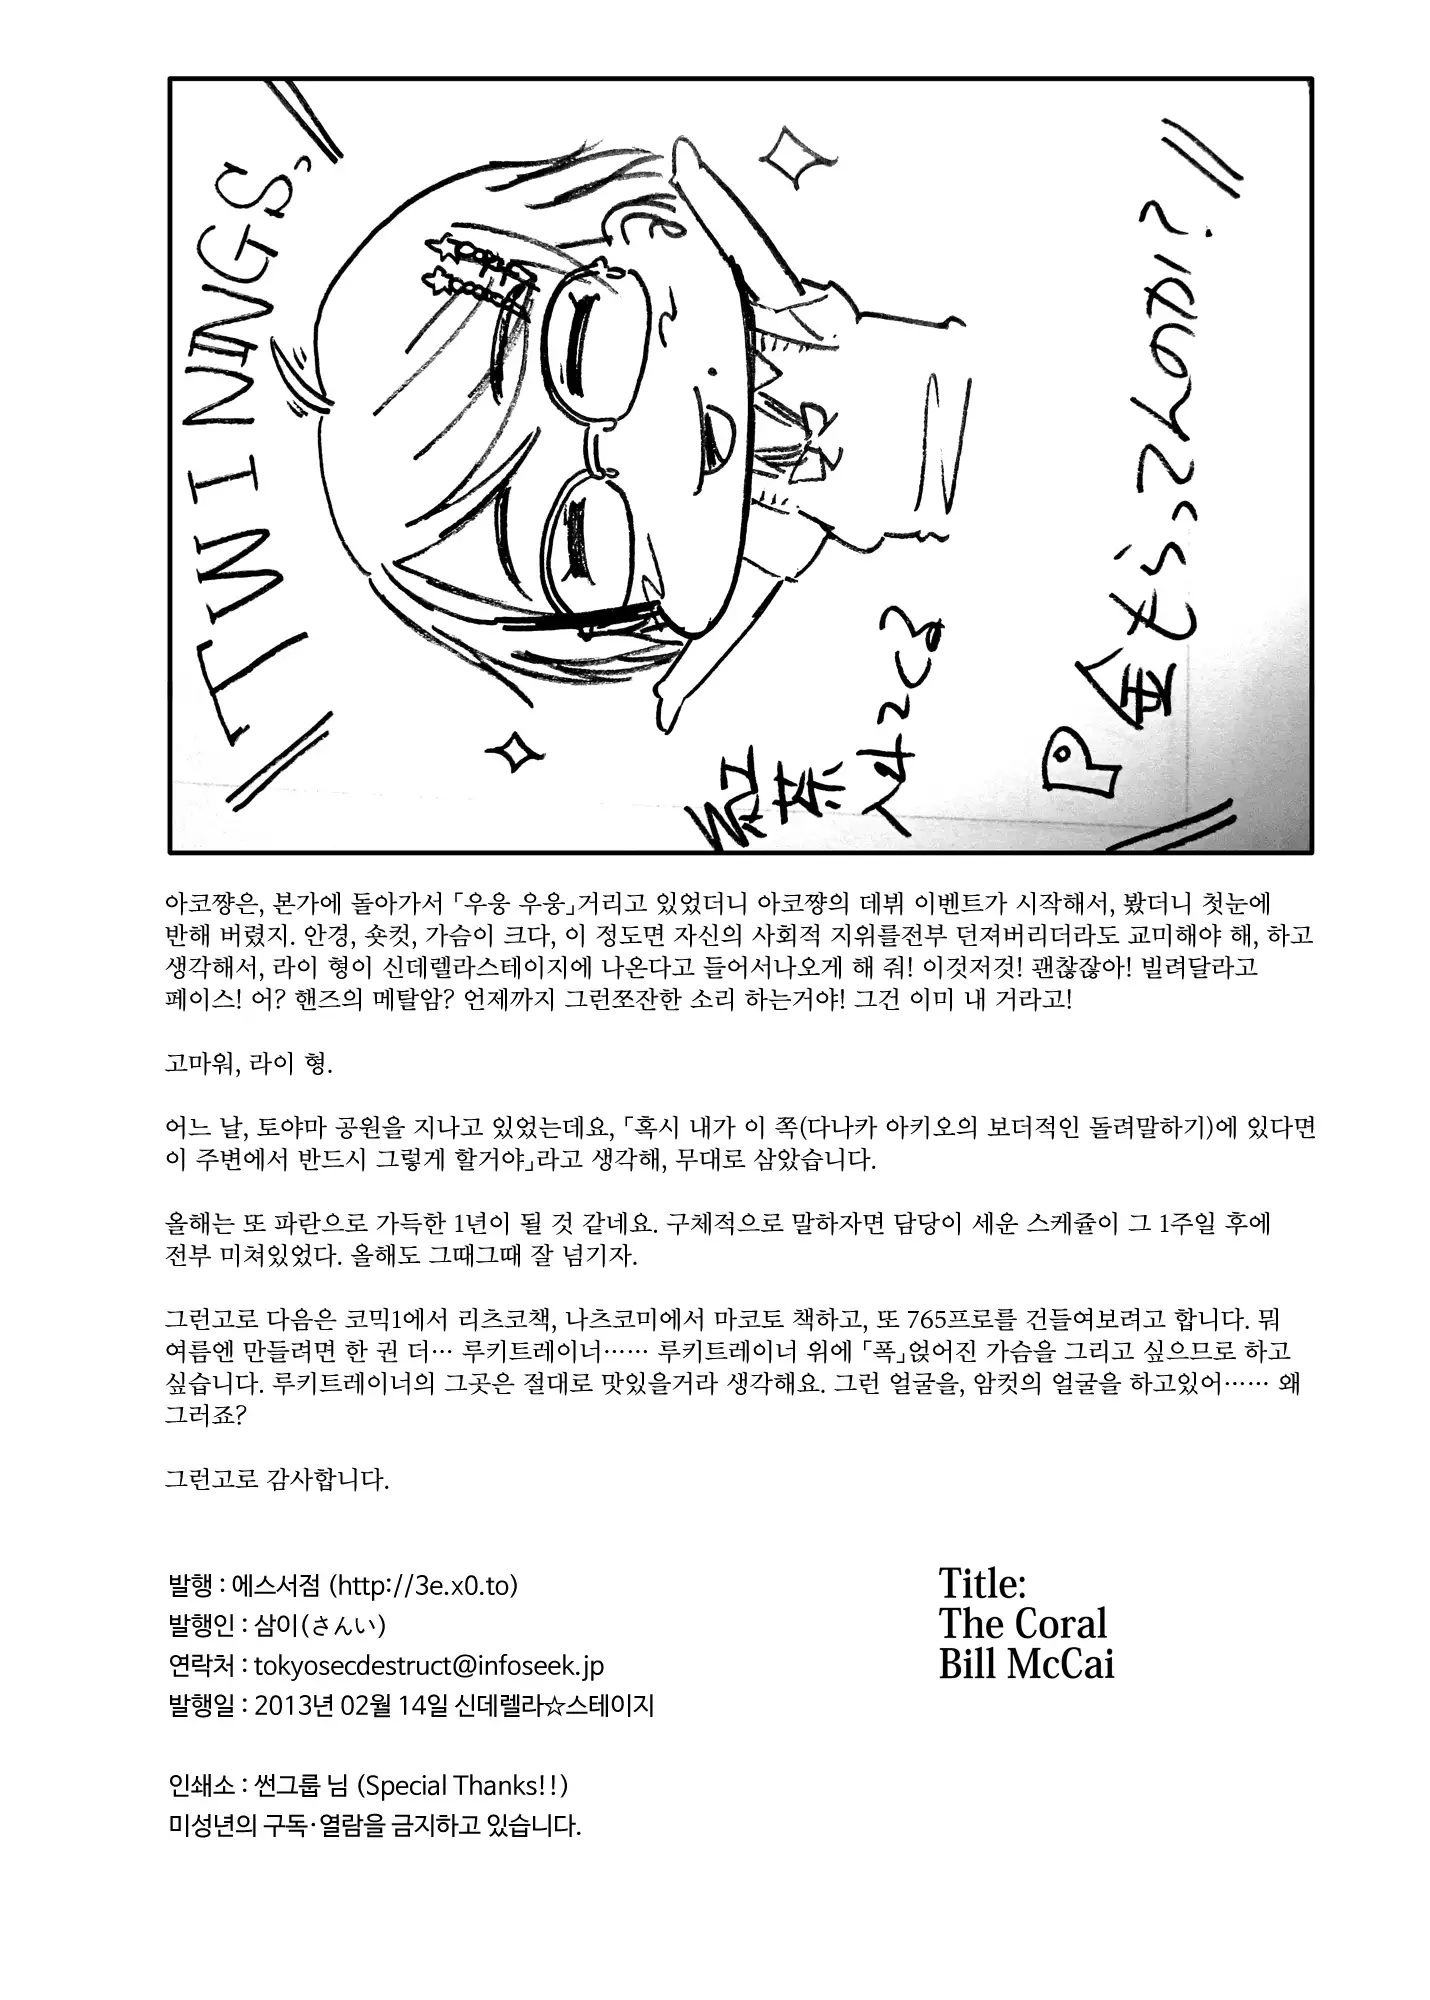 TWININGS
P金もらってんのか?
아코쨩은, 본가에 돌아가서 「우웅 우웅」거리고 있었더니 아코쨩의 데뷔 이벤트가 시작해서, 봤더니 첫눈에
반해 버렸지. 안경, 숏컷, 가슴이 크다, 이 정도면 자신의 사회적 지위를전부 던져버리더라도 교미해야 해, 하고
생각해서, 라이 형이 신데렐라스테이지에 나온다고 들어서나오게 해 줘! 이것저것! 괜찮잖아! 빌려달라고
페이스! 어? 핸즈의 메탈암? 언제까지 그런쪼잔한 소리 하는거야! 그건 이미 내 거라고!
고마워, 라이 형.
어느 날, 토야마 공원을 지나고 있었는데요, 「혹시 내가 이 쪽(다나카 아키오의 보더적인 돌려말하기)에 있다면
이 주변에서 반드시 그렇게 할거야」라고 생각해, 무대로 삼았습니다.
올해는 또 파란으로 가득한 1년이 될 것 같네요. 구체적으로 말하자면 담당이 세운 스케쥴이 그 1주일 후에
전부 미쳐있었다. 올해도 그때그때 잘 넘기자.
그런고로 다음은 코믹1에서 리츠코책, 나츠코미에서 마코토 책하고, 또 765프로를 건들여보려고 합니다. 뭐
여름엔 만들려면 한 권 더… 루키트레이너…… 루키트레이너 위에 「폭」얹어진 가슴을 그리고 싶으므로 하고
싶습니다. 루키트레이너의 그곳은 절대로 맛있을거라 생각해요. 그런 얼굴을, 암컷의 얼굴을 하고있어…… 왜
그러죠?
그런고로 감사합니다.
발행 : 에스서점 (http://3e.x0.to)
발행인 : 삼이(さんい)
연락처 : tokyosecdestruct@infoseek.jp
발행일 : 2013년 02월 14일 신데렐라☆스테이지
인쇄소 : 썬그룹 님 (Special Thanks!!)
미성년의 구독·열람을 금지하고 있습니다.
Title:
The Coral
Bill McCai